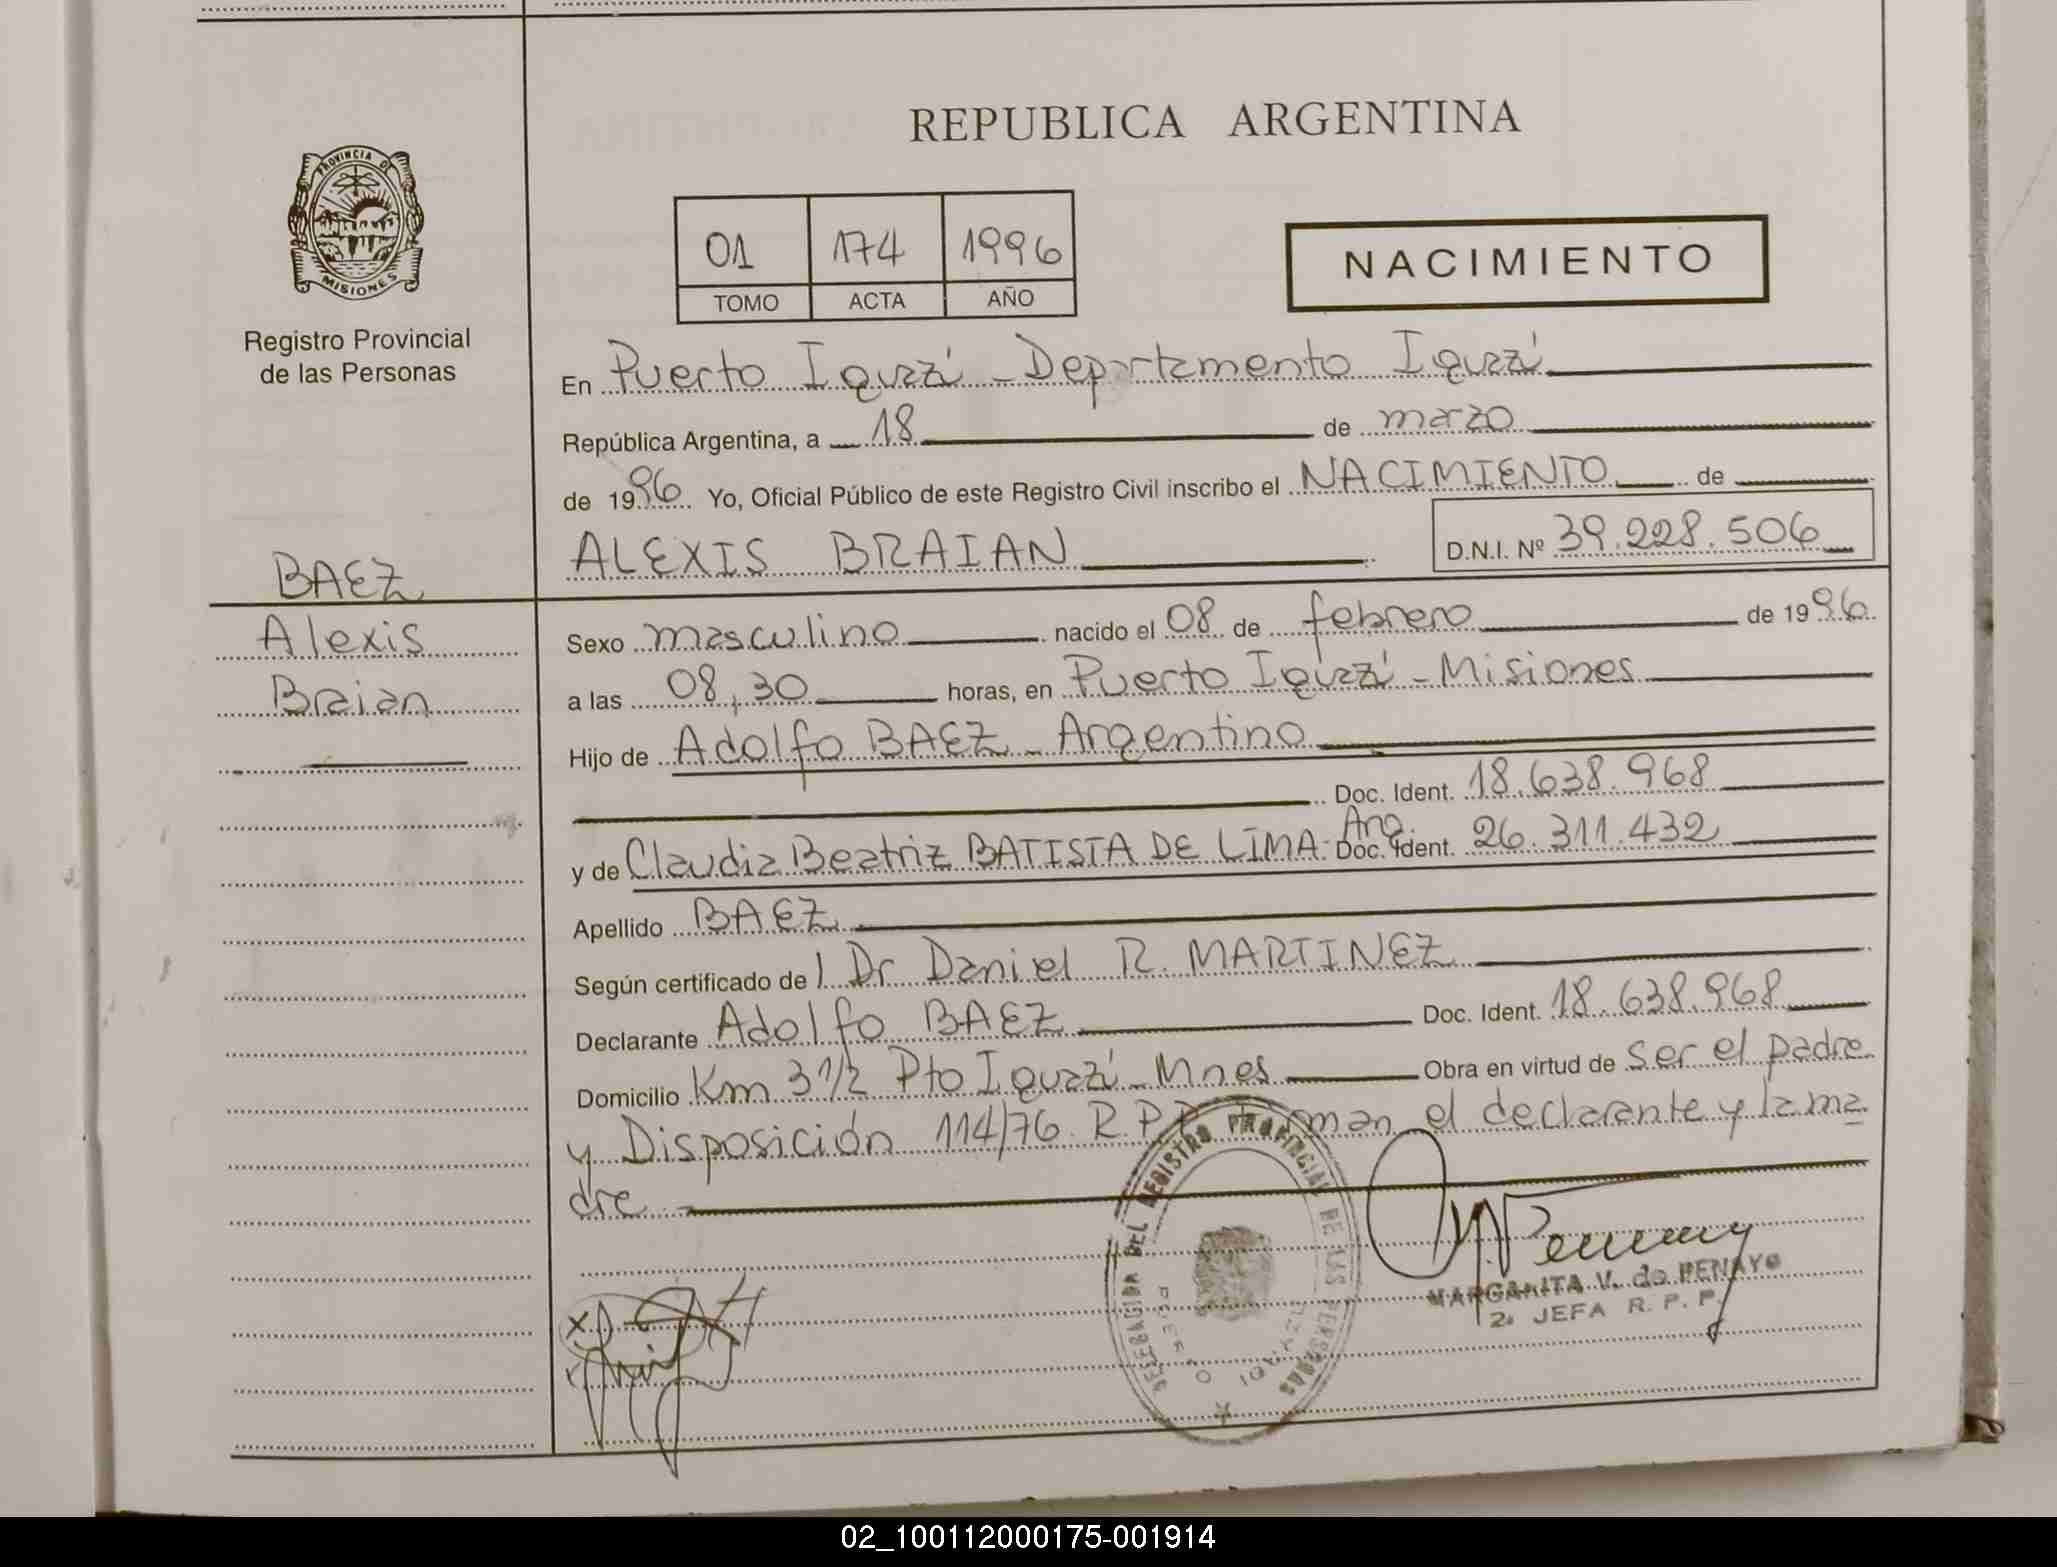 REPUBLICA ARGENTINA
PROVINCIA DE
MISIONES
Registro Provincial
de las Personas
01 174 1996
TOMO ACTA AÑO
NACIMIENTO
En Puerto Iguazú - Departamento Iguazú
República Argentina, a 18 de marzo
de 1996. Yo, Oficial Público de este Registro Civil inscribo el NACIMIENTO de
ALEXIS BRAIAN D.N.I. Nº 39.228.506
BAEZ
Alexis
Braian
Sexo masculino nacido el 08 de febrero de 1996
a las 08,30 horas, en Puerto Iguazú - Misiones
Hijo de Adolfo BAEZ - Argentino
Doc. Ident. 18.638.968
y de Claudia Beatriz BATISTA DE LIMA - Arg. Doc. Ident. 26.311.432
Apellido BAEZ
Según certificado de l Dr Daniel R. MARTINEZ
Declarante Adolfo BAEZ Doc. Ident. 18.638.968
Domicilio Km 3 1/2 Pto Iguazú - Mnes Obra en virtud de ser el padre
y Disposición 114/76 R.P.P. Firman el declarante y la ma
dre
DEL REGISTRO PROVINCIAL DE LAS PERSONAS
PUERTO IGUAZU
MARGARITA V. de PENAYO
2ª JEFA R. P. P.
02_100112000175-001914